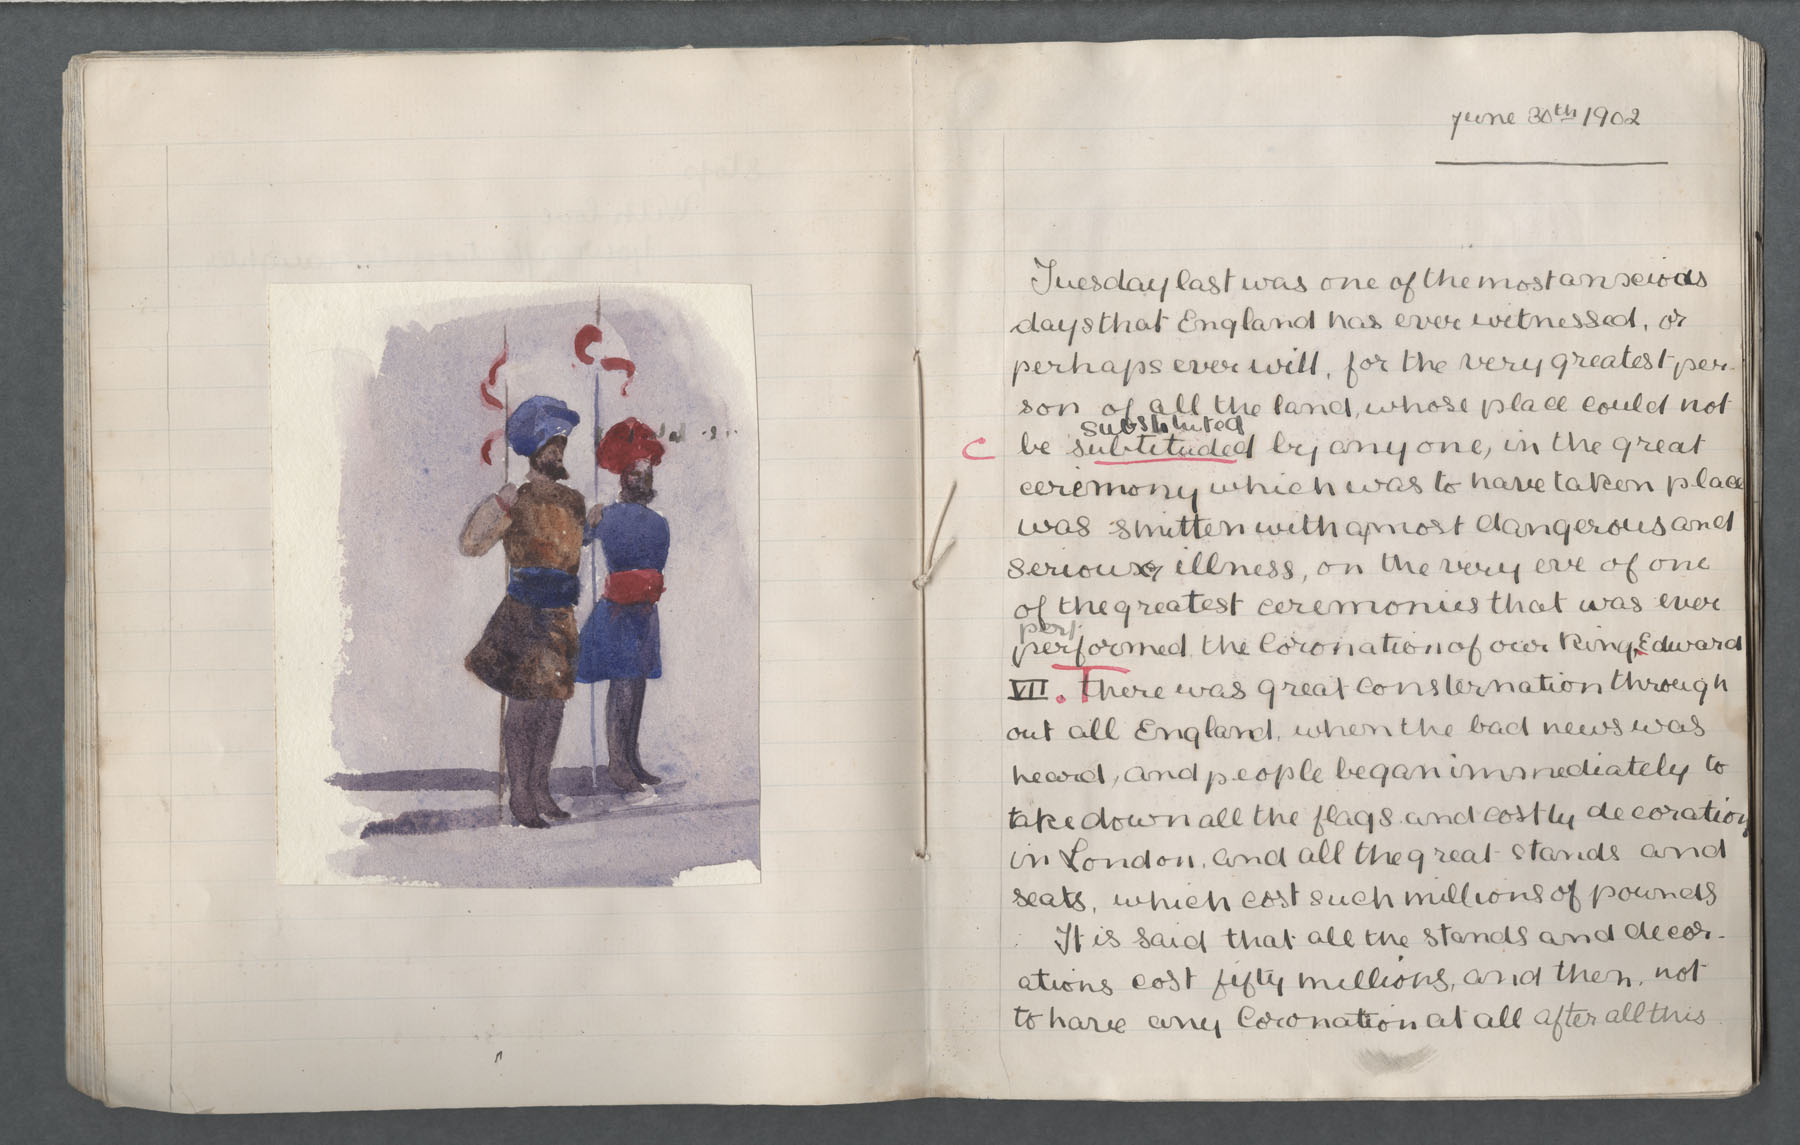 June 30th 1902
Tuesday last was one of the most anxious
days that England has ever witnessed, or
perhaps ever will, for the very greatest per-
son of all the land, whose place could not
substituted
C be subtituded by any one, in the great
ceremony which was to have taken place
was smitten with a most dangerous and
serious illness, on the very eve of one
of the greatest ceremonies that was ever
perf
performed, the Coronation of our King, Edward
VII. There was great consternation through
out all England, when the bad news was
heard, and people began immediately to
take down all the flags and costly decoration
in London, and all the great stands and
seats, which cost such millions of pounds
It is said that all the stands and decor-
ations cost fifty millions, and then, not
to have any Coronation at all after all this